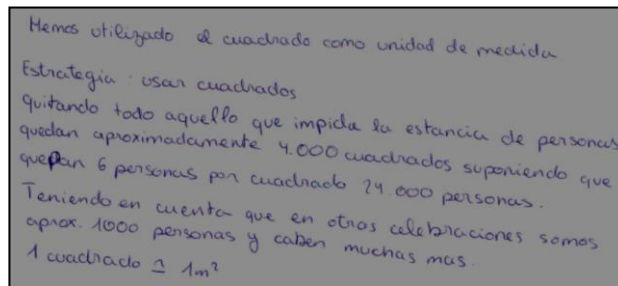 Hemos utilizado el cuadrado como unidad de medida
Estrategia : usar cuadrados
quitando todo aquello que impida la estancia de personas
quedan aproximadamente 4.000 cuadrados suponiendo que
quepan 6 personas por cuadrado 24.000 personas.
Teniendo en cuenta que en otras celebraciones somos
aprox. 1000 personas y caben muchas mas.
1 cuadrado ≙ 1m²